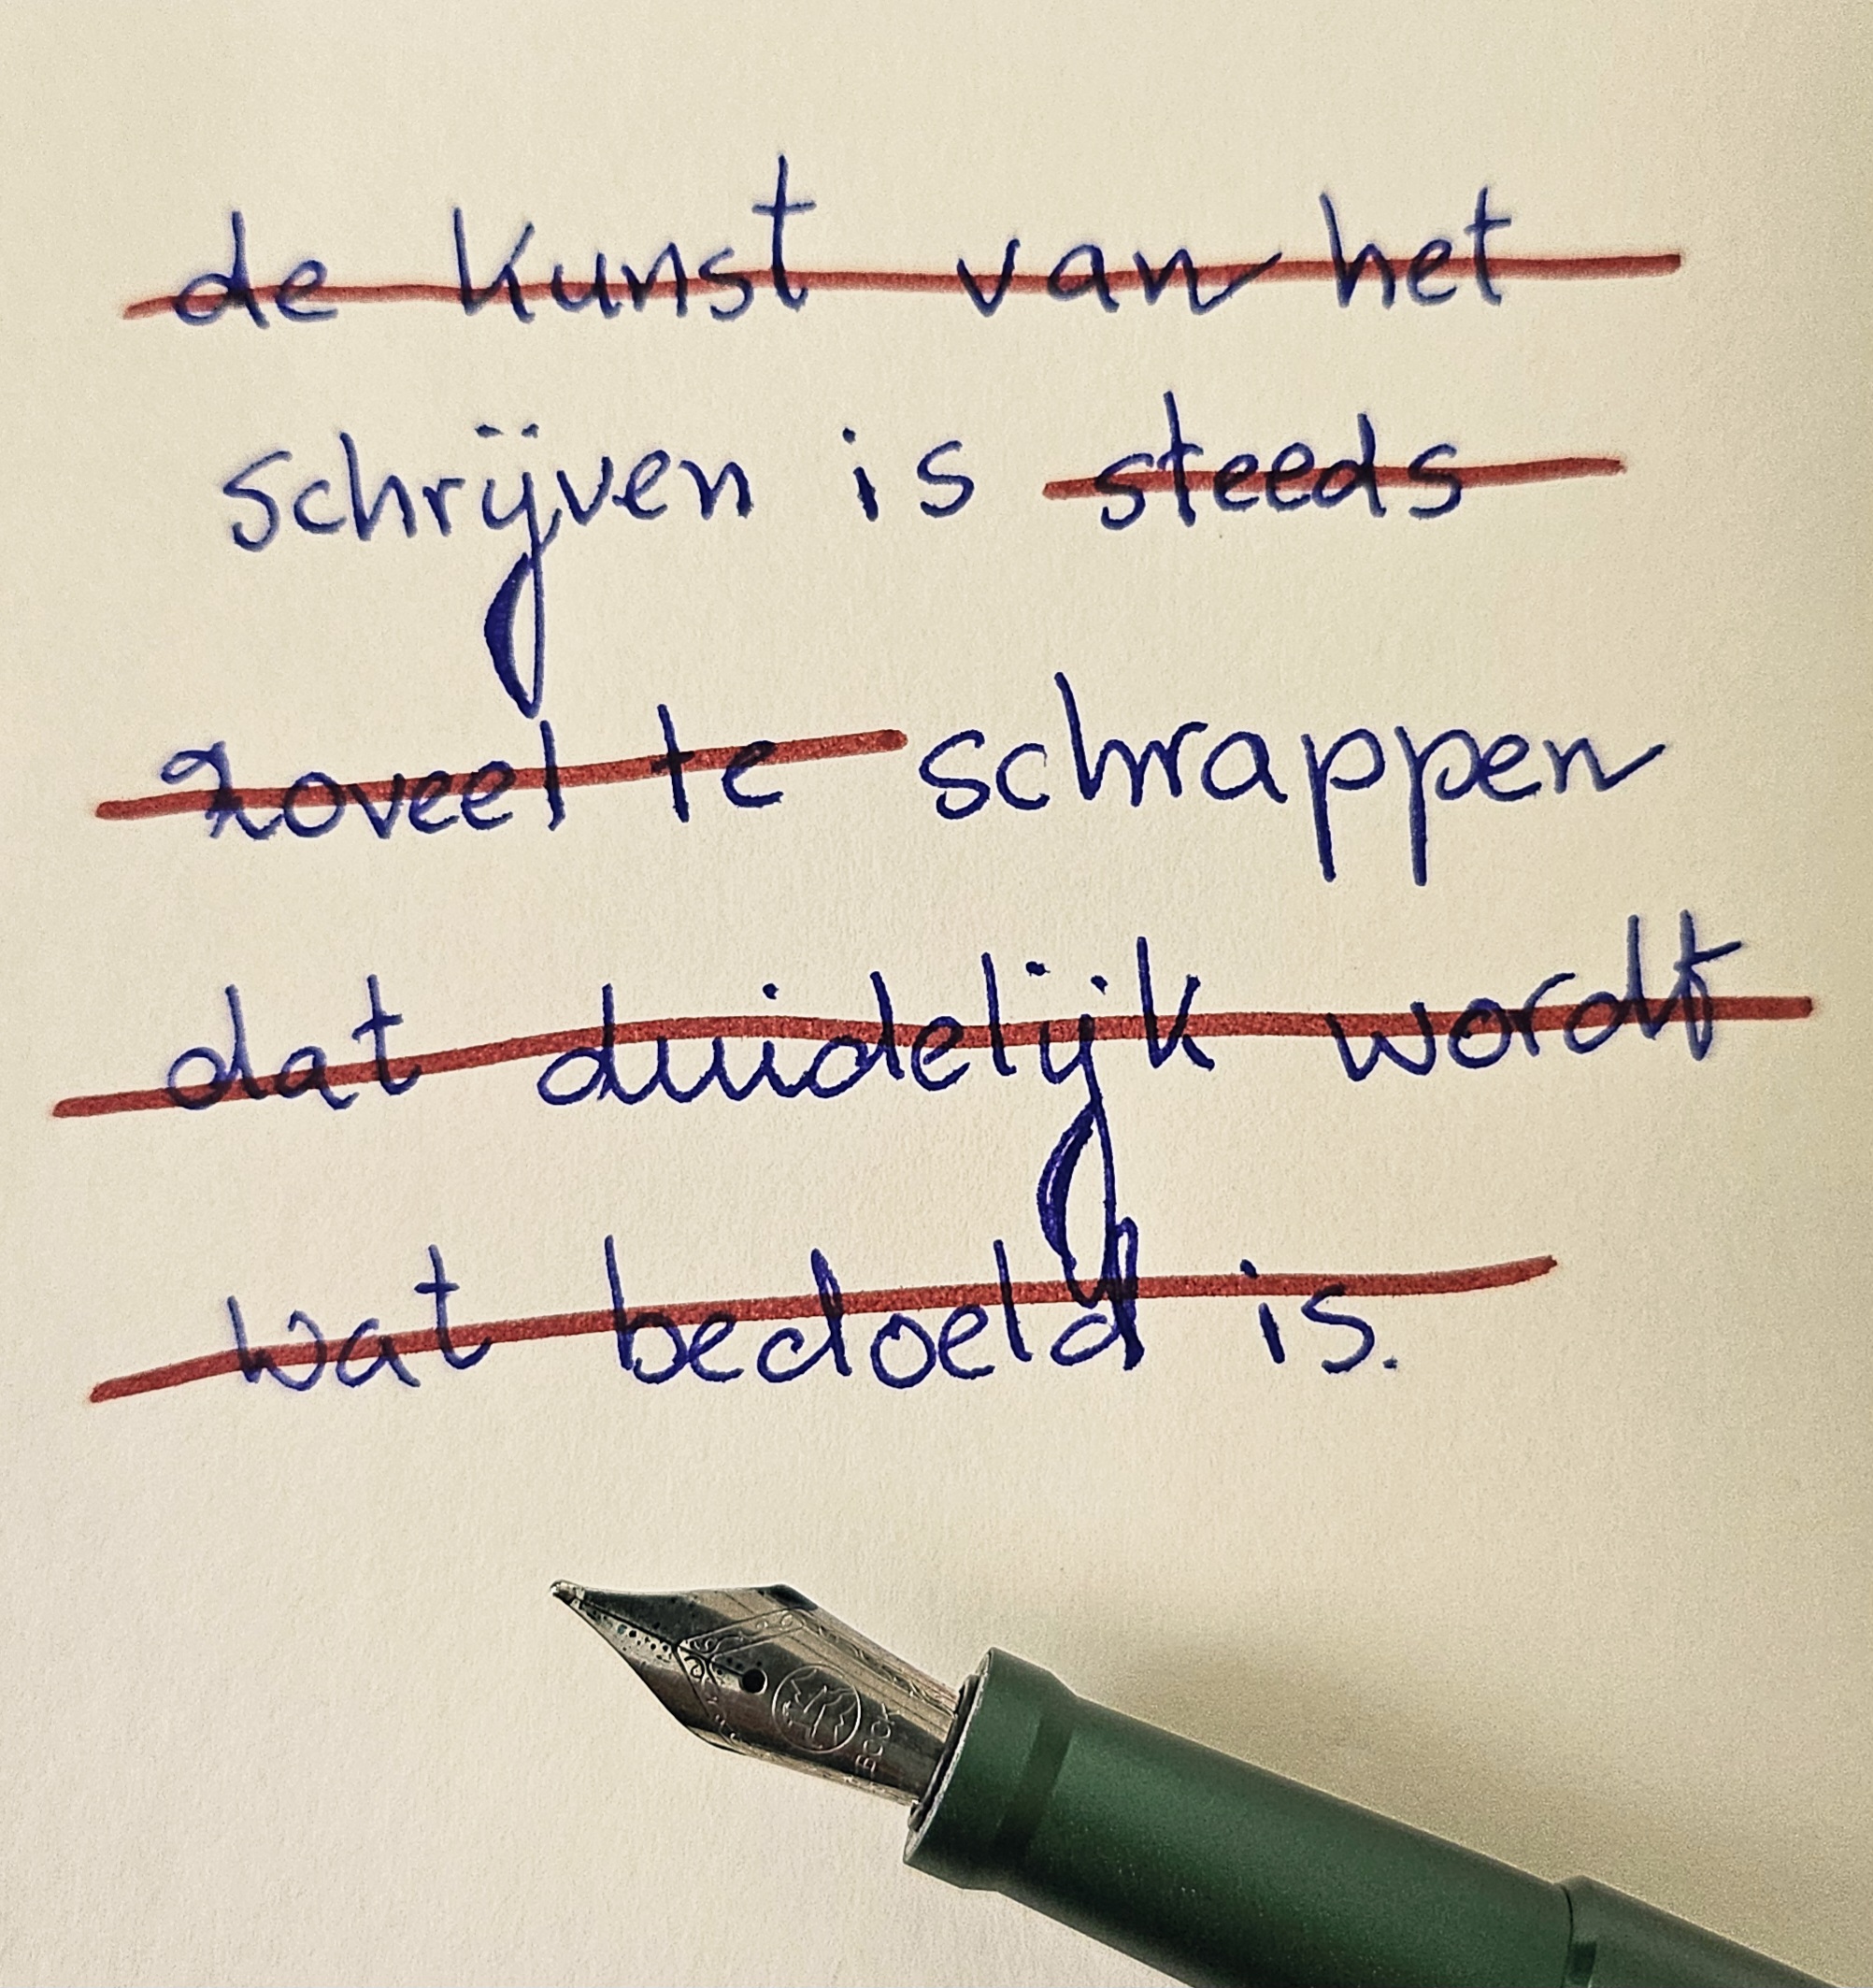 de kunst van het
schrijven is steeds
zoveel te schrappen
dat duidelijk wordt
wat bedoeld is.
BOCK